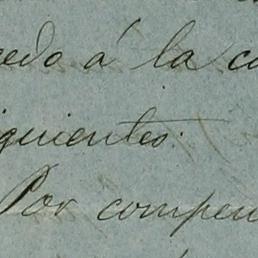 cedo á la c
iguientes:
Por compen